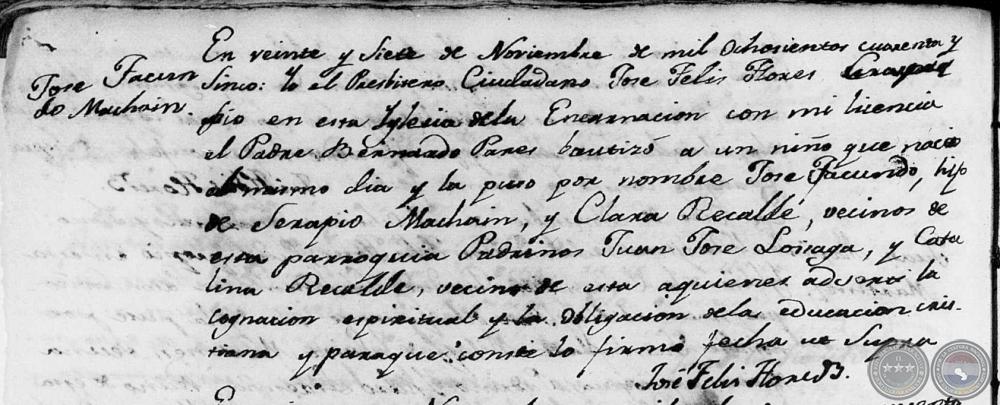 Jose Facun
do Machain.
En veinte y Siete de Noviembre de mil Ochosientos cuarenta y
Sinco: Yo el Presbitero Ciudadano Jose Felis Flores
pio en esta Iglesia de la Encarnacion con mi licencia
el Padre Bernardo Pares bautizó a un niño que nació
el mismo dia y la puso por nombre Jose Facundo, hijo
de Serapio Machain, y Clara Recalde, vecinos de
esta parroquia Padrinos Juan Jose Loisaga, y Cata
lina Recalde, vecino de esta aquienes advertí la
cognacion espiritual y la obligacion de la educacion cris-
tiana y paraque conste lo firmo fecha ut Supra
José Felis Flores